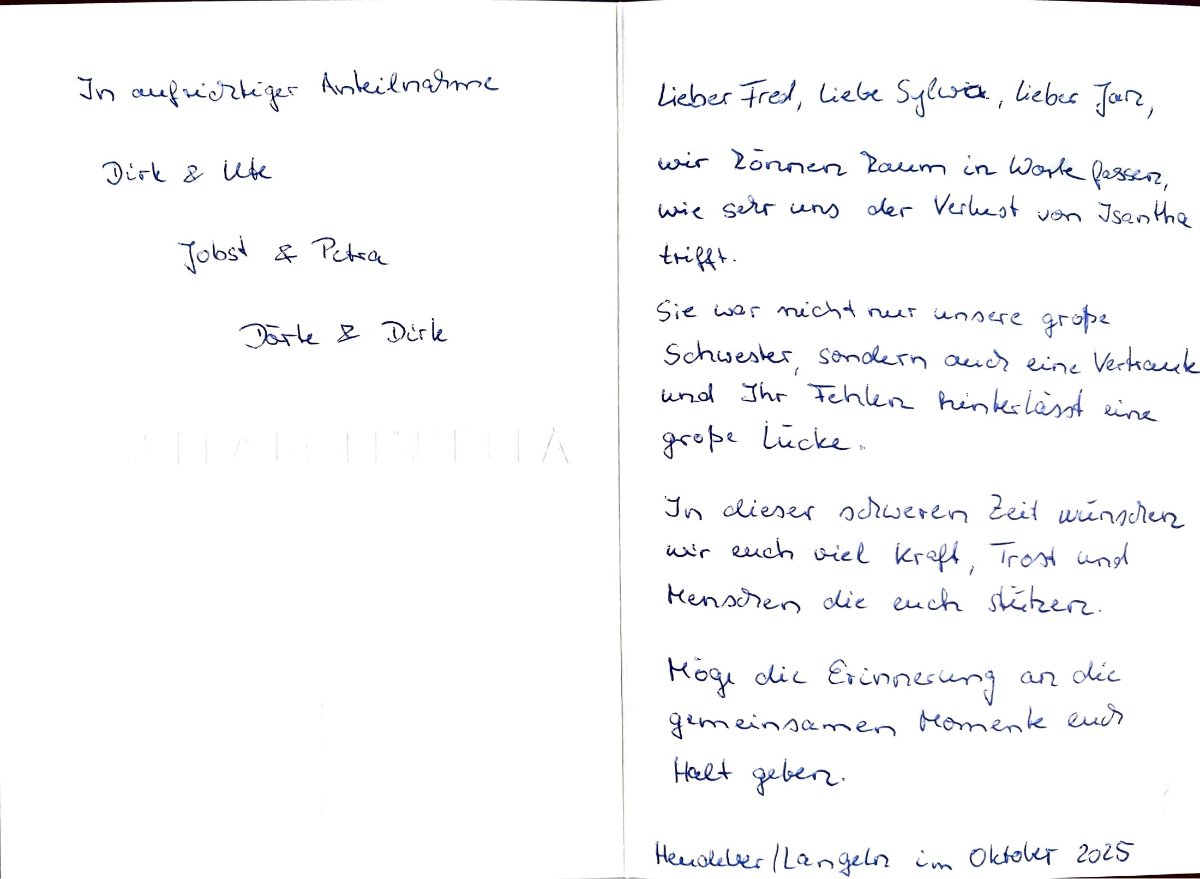 In aufrichtiger Anteilnahme
Dirk & Ute
Jobst & Petra
Dörte & Dirk
Lieber Fred, Liebe Sylvia, Lieber Jan,
wir können kaum in Worte fassen,
wie sehr uns der Verlust von Isantha
trifft.
Sie war nicht nur unsere große
Schwester, sondern auch eine Vertraute
und Ihr Fehlen hinterlässt eine
große Lücke.
In dieser schweren Zeit wünschen
wir euch viel Kraft, Trost und
Menschen die euch stützen.
Möge die Erinnerung an die
gemeinsamen Momente euch
Halt geben.
Heudeber/Langeln im Oktober 2025